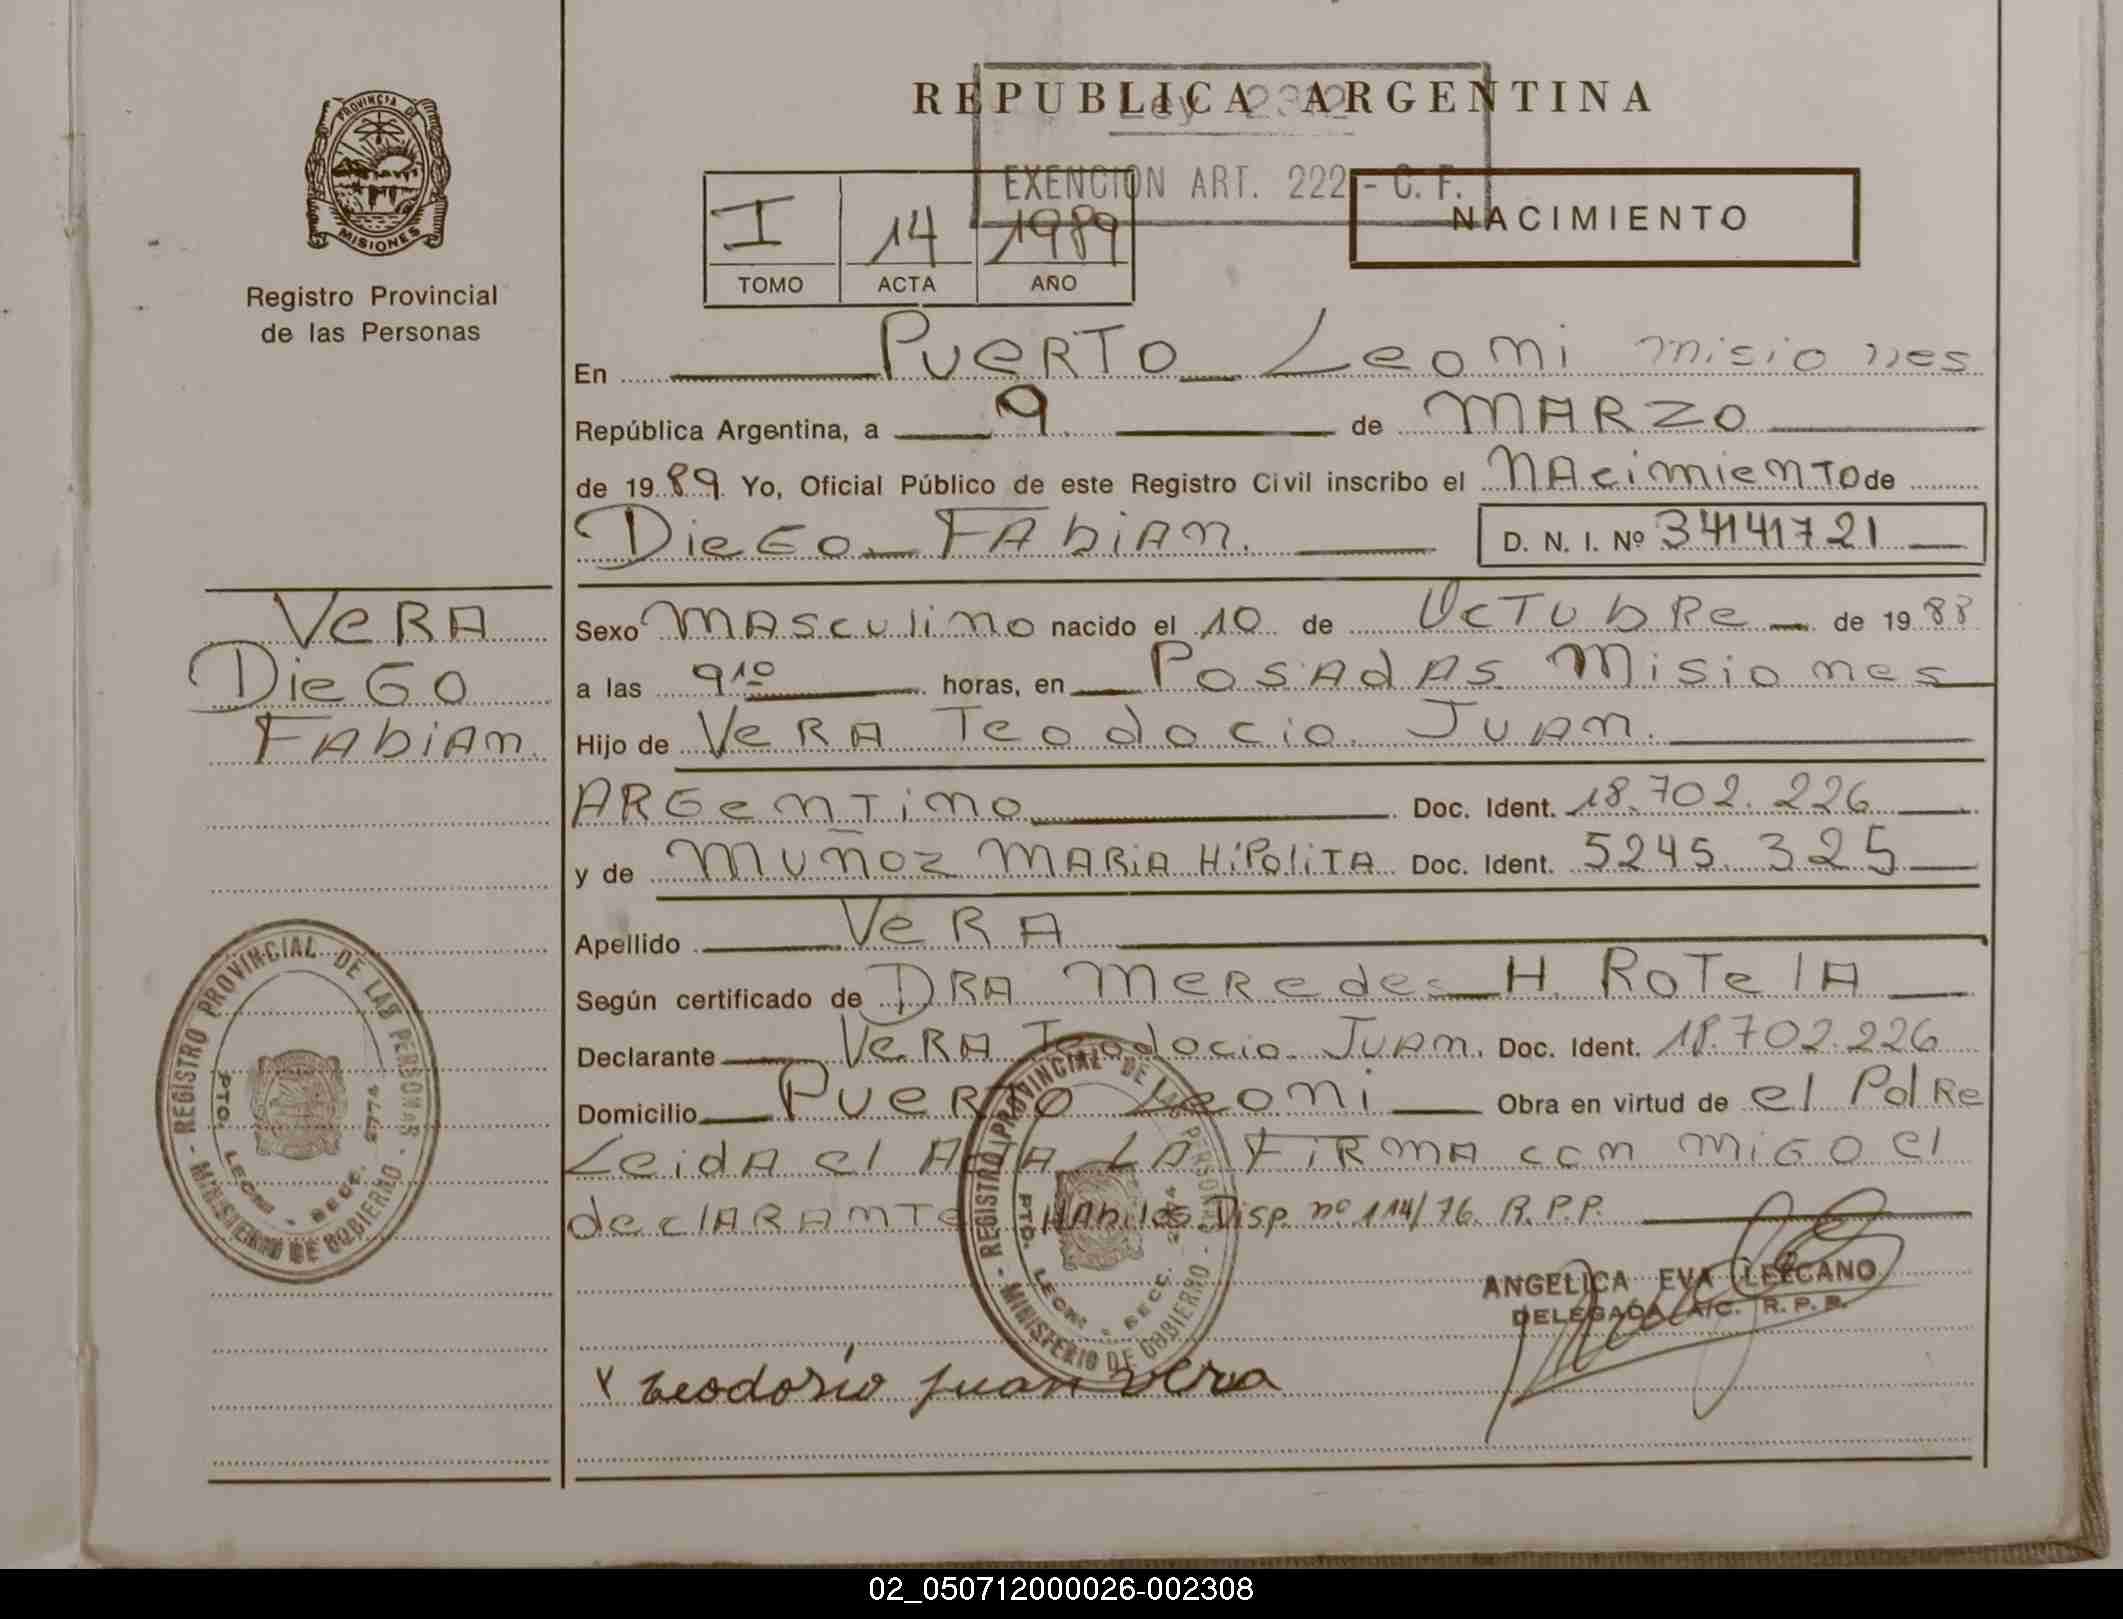 PROVINCIA DE
MISIONES
Registro Provincial
de las Personas
VERA
DIEGO
FABIAN.
REGISTRO PROVINCIAL DE LAS PERSONAS - MINISTERIO DE GOBIERNO -
PTO. LEONI - SECC. 2774
REPUBLICA ARGENTINA
Ley 2302
EXENCION ART. 222 - C. F.
NACIMIENTO
I 14 1989
TOMO ACTA AÑO
En PUERTO Leoni misiones
República Argentina, a 9 de MARZO
de 1989. Yo, Oficial Público de este Registro Civil inscribo el NAcimienTO de
DIEGO FABIAN. D. N. I. Nº 34141721
Sexo MAsculino nacido el 10 de OCTUbRe de 1988
a las 9 10 horas, en POSADAS Misiones
Hijo de VERA Teodocio JUAN.
ARGenTino Doc. Ident. 18.702.226
y de MUÑOZ MARIA HIPOLITA Doc. Ident. 5245.325
Apellido VeRA
Según certificado de DRA MeRedes H. RoTelA
Declarante VeRA Teodocio JUAN. Doc. Ident. 18.702.226
Domicilio PUERTO Leoni Obra en virtud de el PadRe
LeidA el ActA LA FiRMA con miGO el
declARANTe HAbiles Disp. nº 114/76 R.P.P.
REGISTRO PROVINCIAL DE LAS PERSONAS - MINISTERIO DE GOBIERNO -
PTO. LEONI - SECC. 2774
ANGELICA EVA LEZCANO
DELEGADA A/C. R. P. P.
x teodosio juan vera
02_050712000026-002308